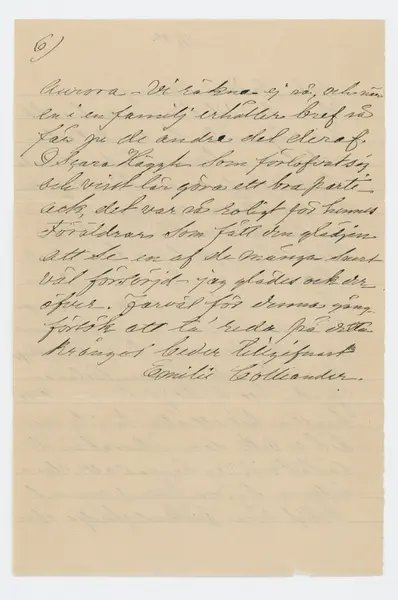 6)
Aurora - Vi räkna ej så, och när
en i en familj erhåller bref så
får ju de andra del deraf.
Häggh som förlofvat sig
och visst lär göra ett bra parti
ack, det var så roligt för hennes
Föräldrar som fått den glädjen
att se en af de många samt
väl försörjd - jag glädes ock der
öfver. Farväl för denna gång
försök att få reda på detta
krångel Eder tillgifna
Emilie Colliander.